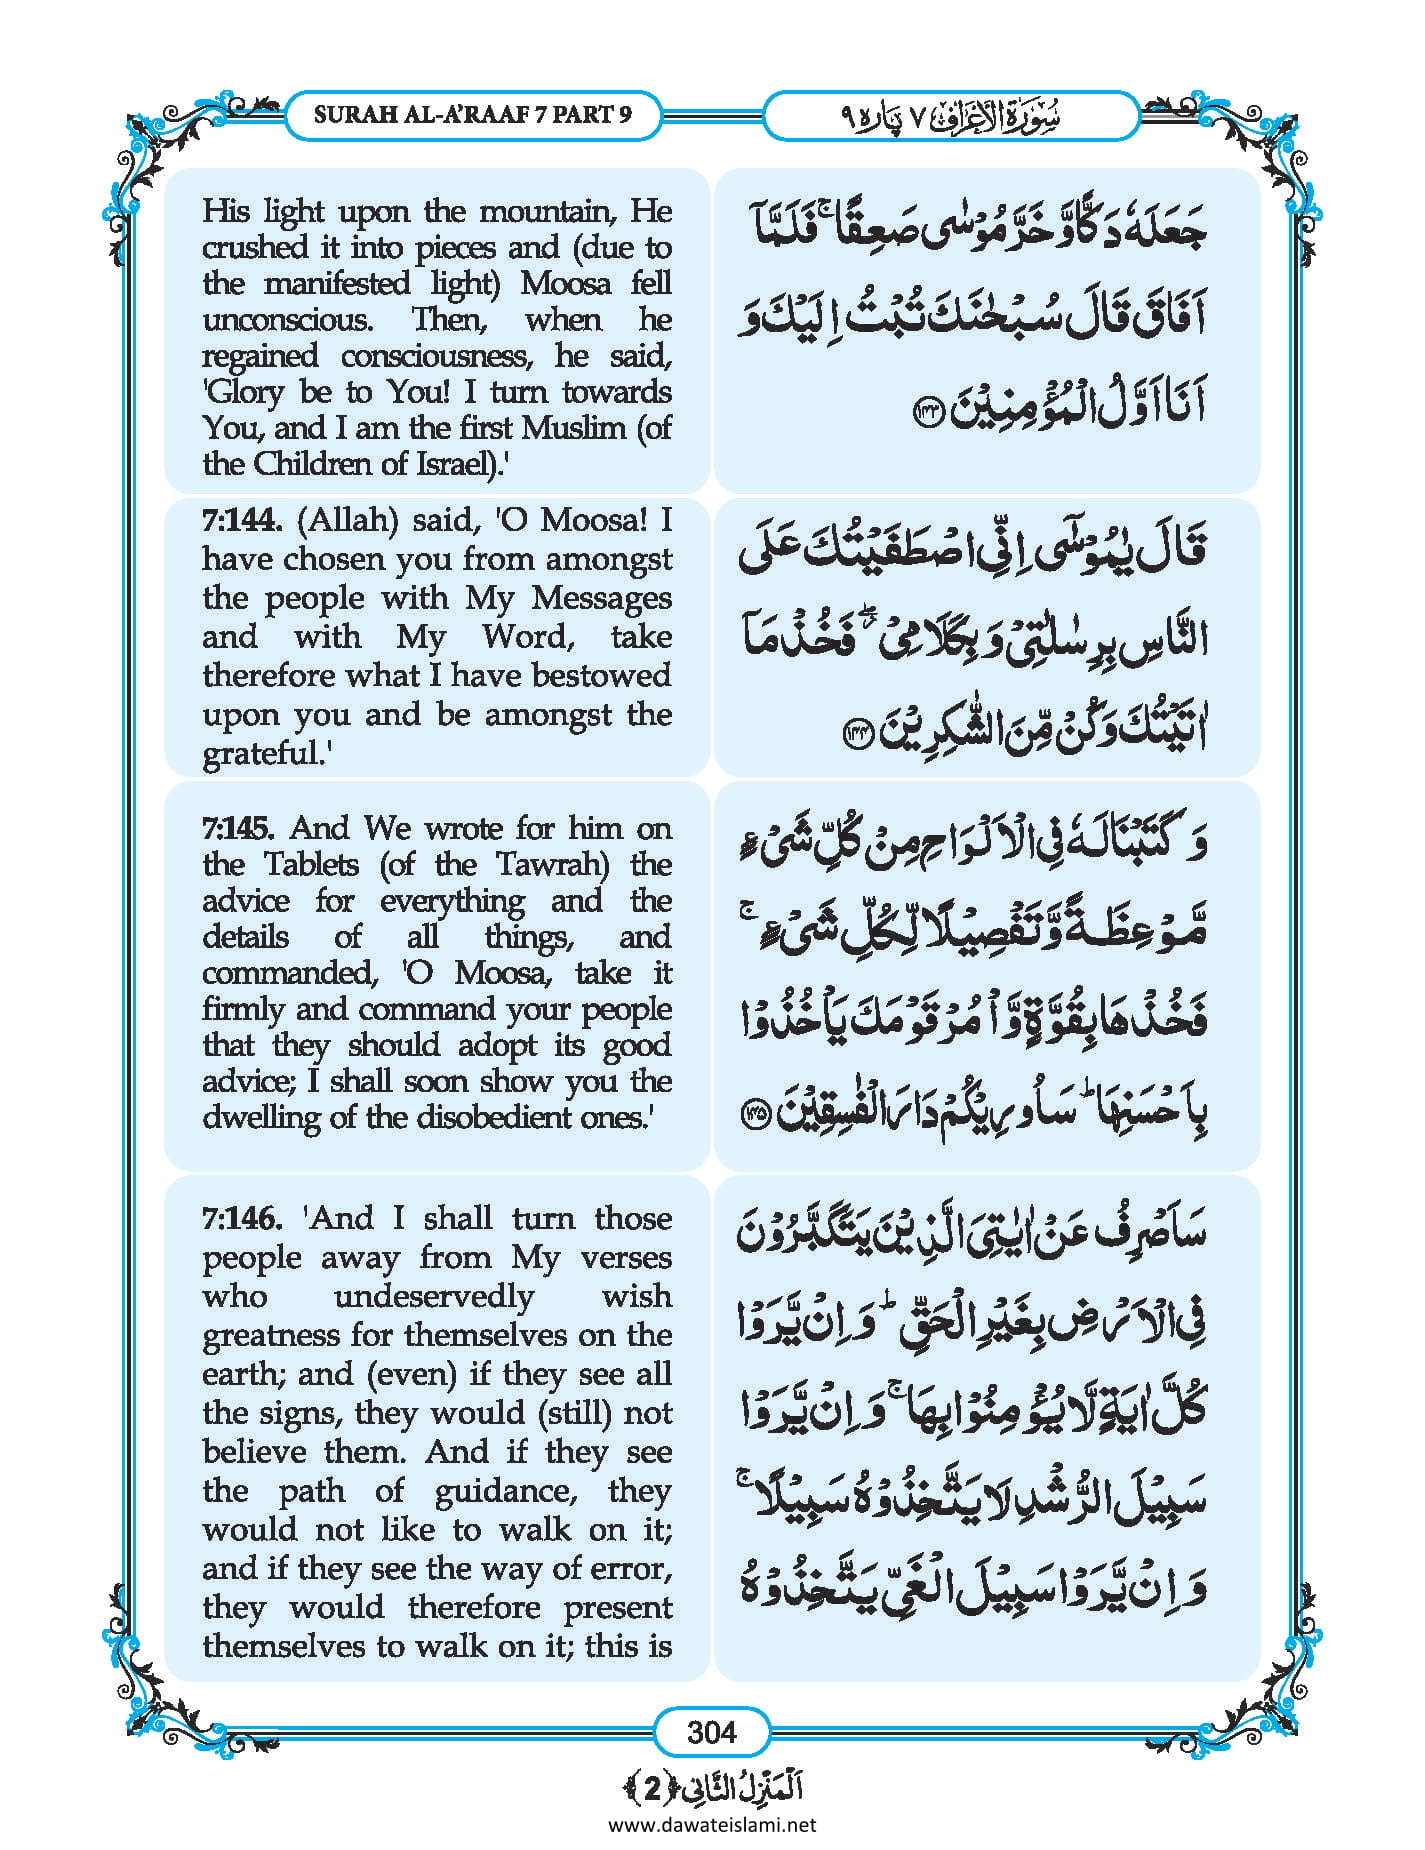 SURAH AL-A'RAAF 7 PART 9
سُوْرَۃُ الْاَعْرَاف ۷ پارہ ۹
His light upon the mountain, He
crushed it into pieces and (due to
the manifested light) Moosa fell
unconscious. Then, when he
regained consciousness, he said,
'Glory be to You! I turn towards
You, and I am the first Muslim (of
the Children of Israel).'
جَعَلَهٗ دَكًّا وَّ خَرَّ مُوْسٰى صَعِقًا ۚ فَلَمَّاۤ
اَفَاقَ قَالَ سُبْحٰنَكَ تُبْتُ اِلَیْكَ وَ
اَنَا اَوَّلُ الْمُؤْمِنِیْنَ ۱۴۳
7:144. (Allah) said, 'O Moosa! I
have chosen you from amongst
the people with My Messages
and with My Word, take
therefore what I have bestowed
upon you and be amongst the
grateful.'
قَالَ یٰمُوْسٰۤى اِنِّی اصْطَفَیْتُكَ عَلَى
النَّاسِ بِرِسٰلٰتِیْ وَ بِكَلَامِیْ ۖ٘ فَخُذْ مَاۤ
اٰتَیْتُكَ وَ كُنْ مِّنَ الشّٰكِرِیْنَ ۱۴۴
7:145. And We wrote for him on
the Tablets (of the Tawrah) the
advice for everything and the
details of all things, and
commanded, 'O Moosa, take it
firmly and command your people
that they should adopt its good
advice; I shall soon show you the
dwelling of the disobedient ones.'
وَ كَتَبْنَا لَهٗ فِی الْاَلْوَاحِ مِنْ كُلِّ شَیْءٍ
مَّوْعِظَةً وَّ تَفْصِیْلًا لِّكُلِّ شَیْءٍ ۚ
فَخُذْهَا بِقُوَّةٍ وَّ اْمُرْ قَوْمَكَ یَاْخُذُوْا
بِاَحْسَنِهَا ؕ سَاُورِیْكُمْ دَارَ الْفٰسِقِیْنَ ۱۴۵
7:146. 'And I shall turn those
people away from My verses
who undeservedly wish
greatness for themselves on the
earth; and (even) if they see all
the signs, they would (still) not
believe them. And if they see
the path of guidance, they
would not like to walk on it;
and if they see the way of error,
they would therefore present
themselves to walk on it; this is
سَاَصْرِفُ عَنْ اٰیٰتِیَ الَّذِیْنَ یَتَكَبَّرُوْنَ
فِی الْاَرْضِ بِغَیْرِ الْحَقِّ ؕ وَ اِنْ یَّرَوْا
كُلَّ اٰیَةٍ لَّا یُؤْمِنُوْا بِهَا ۚ وَ اِنْ یَّرَوْا
سَبِیْلَ الرُّشْدِ لَا یَتَّخِذُوْهُ سَبِیْلًا ۚ
وَ اِنْ یَّرَوْا سَبِیْلَ الْغَیِّ یَتَّخِذُوْهُ
304
اَلْمَنْزِلُ الثَّانِی ﴿2﴾
www.dawateislami.net